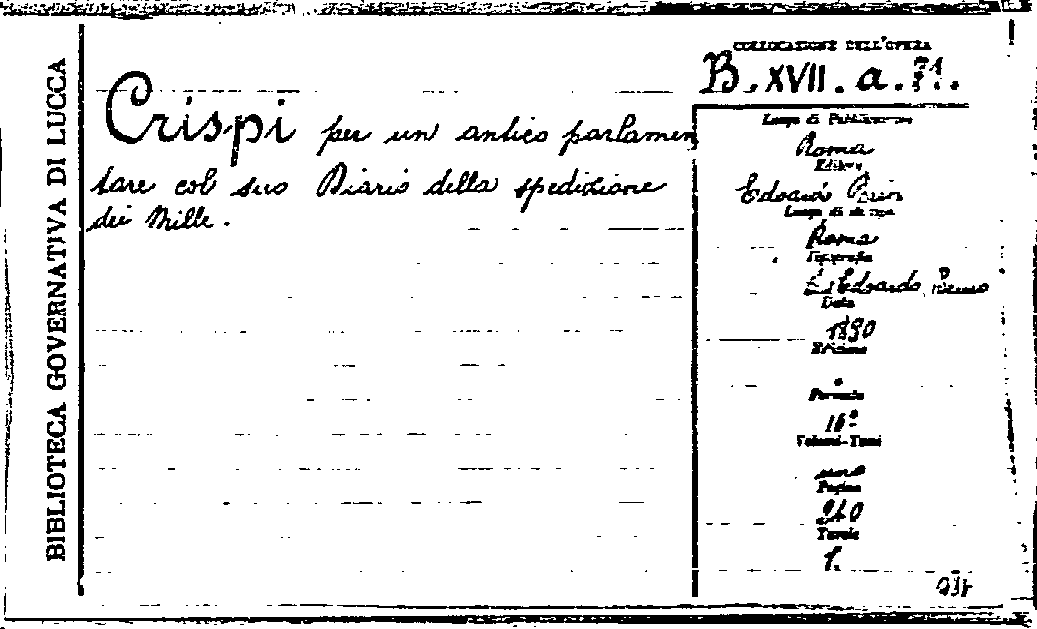 BIBLIOTECA GOVERNATIVA DI LUCCA
COLLOCAZIONE DELL'OPERA
B. XVII. a. 71.
Crispi per un antico parlamen
tare col suo Diario della spedizione
dei Mille.
Luogo di Pubblicazione
Roma
Editore
Edoardo Perino
Luogo di stampa
Roma
Tipografia
Edoardo Perino
Data
1890
Edizione
Formato
16º
Volumi-Tomi
uno
Pagine
240
Tavole
1.